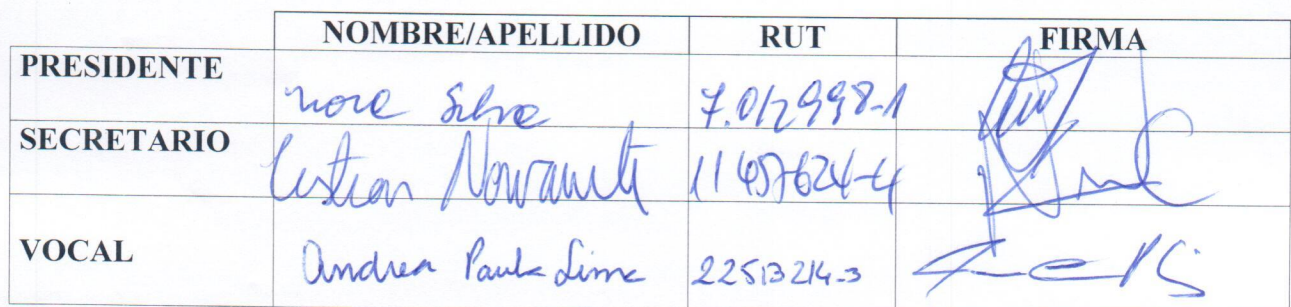 NOMBRE/APELLIDO RUT FIRMA
PRESIDENTE
Silva 7.012998-1
SECRETARIO
11457624-4
VOCAL
Andrea Paula Lima 22513214-3